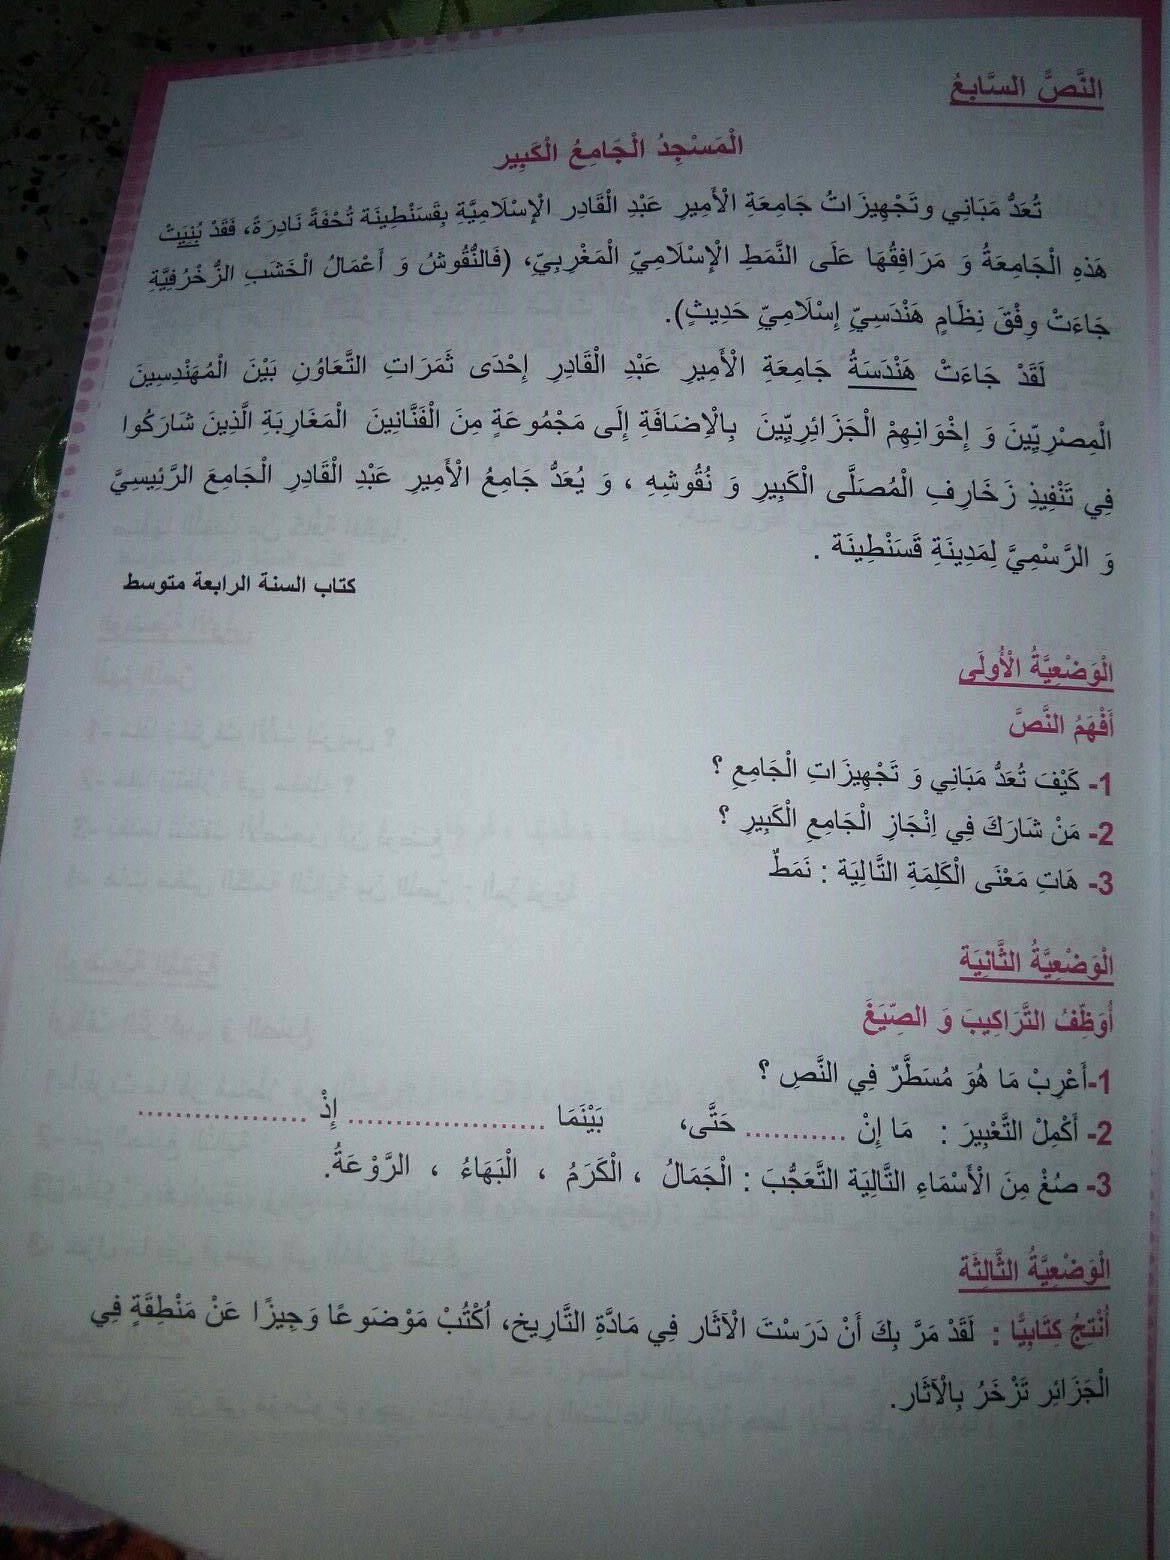 النَّصُّ السَّابِعُ
الْمَسْجِدُ الْجَامِعُ الْكَبِير
تُعَدُّ مَبَانِي وتَجْهِيزَاتُ جَامِعَةِ الْأَمِيرِ عَبْدِ الْقَادِر الْإِسْلَامِيَّةِ بِقَسَنْطِينَة تُحْفَةً نَادِرَةً، فَقَدْ بُنِيَتْ
هَذِهِ الْجَامِعَةُ وَ مَرَافِقُهَا عَلَى النَّمَطِ الْإِسْلَامِيِّ الْمَغْرِبِيّ، (فَالنُّقُوشُ وَ أَعْمَالُ الْخَشَبِ الزُّخْرُفِيَّةِ
جَاءَتْ وِفْقَ نِظَامٍ هَنْدَسِيٍّ إِسْلَامِيٍّ حَدِيثٍ).
لَقَدْ جَاءَتْ هَنْدَسَةُ جَامِعَةِ الْأَمِيرِ عَبْدِ الْقَادِرِ إِحْدَى ثَمَرَاتِ التَّعَاوُنِ بَيْنَ الْمُهَنْدِسِينَ
الْمِصْرِيِّينَ وَ إِخْوَانِهِمْ الْجَزَائِرِيِّينَ بِالْإِضَافَةِ إِلَى مَجْمُوعَةٍ مِنَ الْفَنَّانِينَ الْمَغَارِبَةِ الَّذِينَ شَارَكُوا
فِي تَنْفِيذِ زَخَارِفِ الْمُصَلَّى الْكَبِيرِ وَ نُقُوشِهِ ، وَ يُعَدُّ جَامِعُ الْأَمِيرِ عَبْدِ الْقَادِرِ الْجَامِعَ الرَّئِيسِيَّ
وَ الرَّسْمِيَّ لِمَدِينَةِ قَسَنْطِينَة .
كتاب السنة الرابعة متوسط
الْوَضْعِيَّةُ الْأُولَى
أَفْهَمُ النَّصَّ
1- كَيْفَ تُعَدُّ مَبَانِي وَ تَجْهِيزَاتِ الْجَامِعِ ؟
2- مَنْ شَارَكَ فِي اِنْجَازِ الْجَامِعِ الْكَبِيرِ ؟
3- هَاتِ مَعْنَى الْكَلِمَةِ التَّالِيَة : نَمَطٌ
الْوَضْعِيَّةُ الثَّانِيَة
أُوَظِّفُ التَّرَاكِيبَ وَ الصِّيَغَ
1-أَعْرِبْ مَا هُوَ مُسَطَّرٌ فِي النَّصِ ؟
2- أَكْمِلْ التَّعْبِيرَ : مَا إِنْ ........... حَتَّى، بَيْنَمَا ...................... إِذْ ...................
3- صُغْ مِنَ الْأَسْمَاءِ التَّالِيَة التَّعَجُّبَ : الْجَمَالُ ، الْكَرَمُ ، الْبَهَاءُ ، الرَّوْعَةُ.
الْوَضْعِيَّةُ الثَّالِثَة
أُنْتِجُ كِتَابِيًّا : لَقَدْ مَرَّ بِكَ أَنْ دَرَسْتَ الْآثَار فِي مَادَّةِ التَّارِيخ، اُكْتُبْ مَوْضَوعًا وَجِيزًا عَنْ مَنْطِقَةٍ فِي
الْجَزَائِر تَزْخَرُ بِالْآثَار.